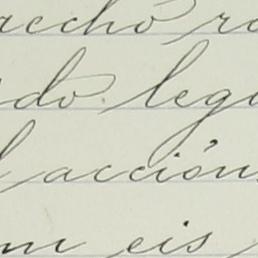 recho ro
do. lega
l acción
m eis